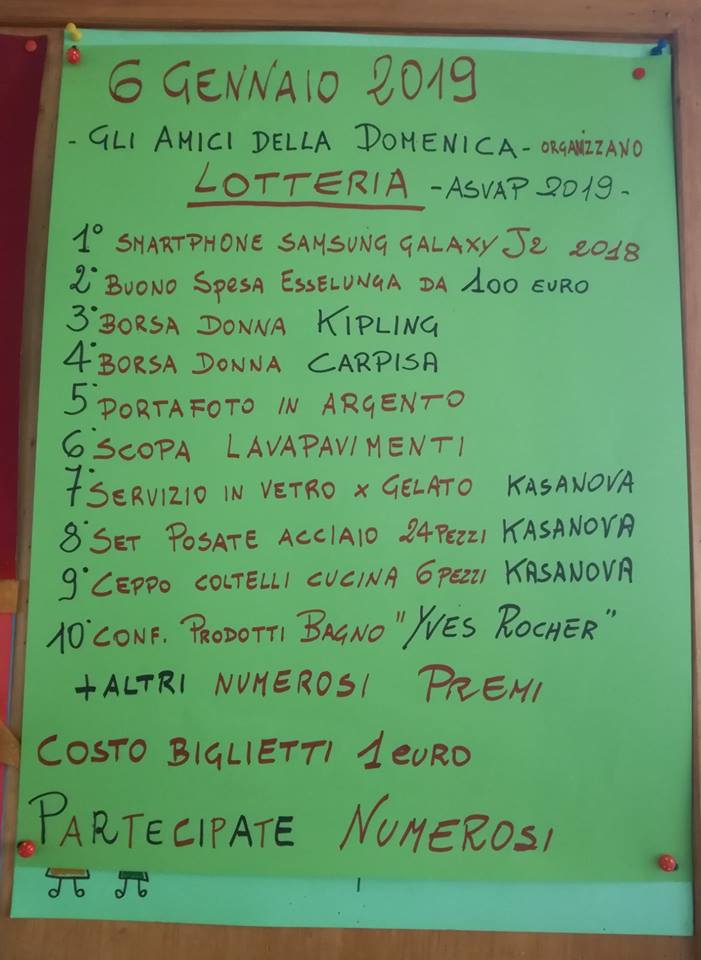 6 GENNAIO 2019
- GLI AMICI DELLA DOMENICA - ORGANIZZANO
LOTTERIA - ASVAP 2019 -
1° SMARTPHONE SAMSUNG GALAXY J2 2018
2° BUONO SPESA ESSELUNGA DA 100 EURO
3° BORSA DONNA KIPLING
4° BORSA DONNA CARPISA
5° PORTAFOTO IN ARGENTO
6° SCOPA LAVAPAVIMENTI
7° SERVIZIO IN VETRO x GELATO KASANOVA
8° SET POSATE ACCIAIO 24 PEZZI KASANOVA
9° CEPPO COLTELLI CUCINA 6 PEZZI KASANOVA
10° CONF. PRODOTTI BAGNO "YVES ROCHER"
+ ALTRI NUMEROSI PREMI
COSTO BIGLIETTI 1 EURO
PARTECIPATE NUMEROSI